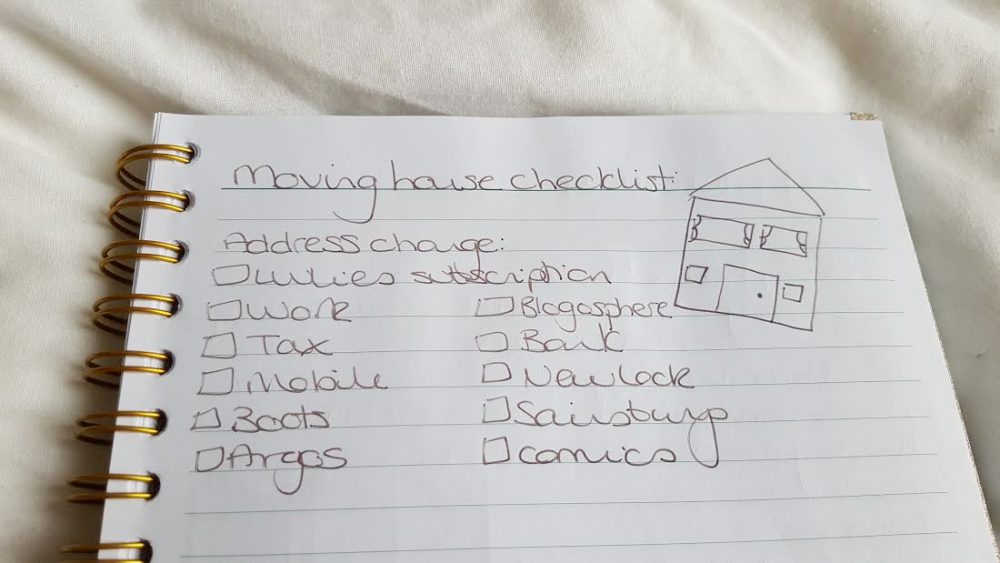 Moving house checklist:
Address change:
subscription
Work
Tax
Mobile
Boots
Argos
Blogosphere
Bank
New Look
Sainsburys
Comics